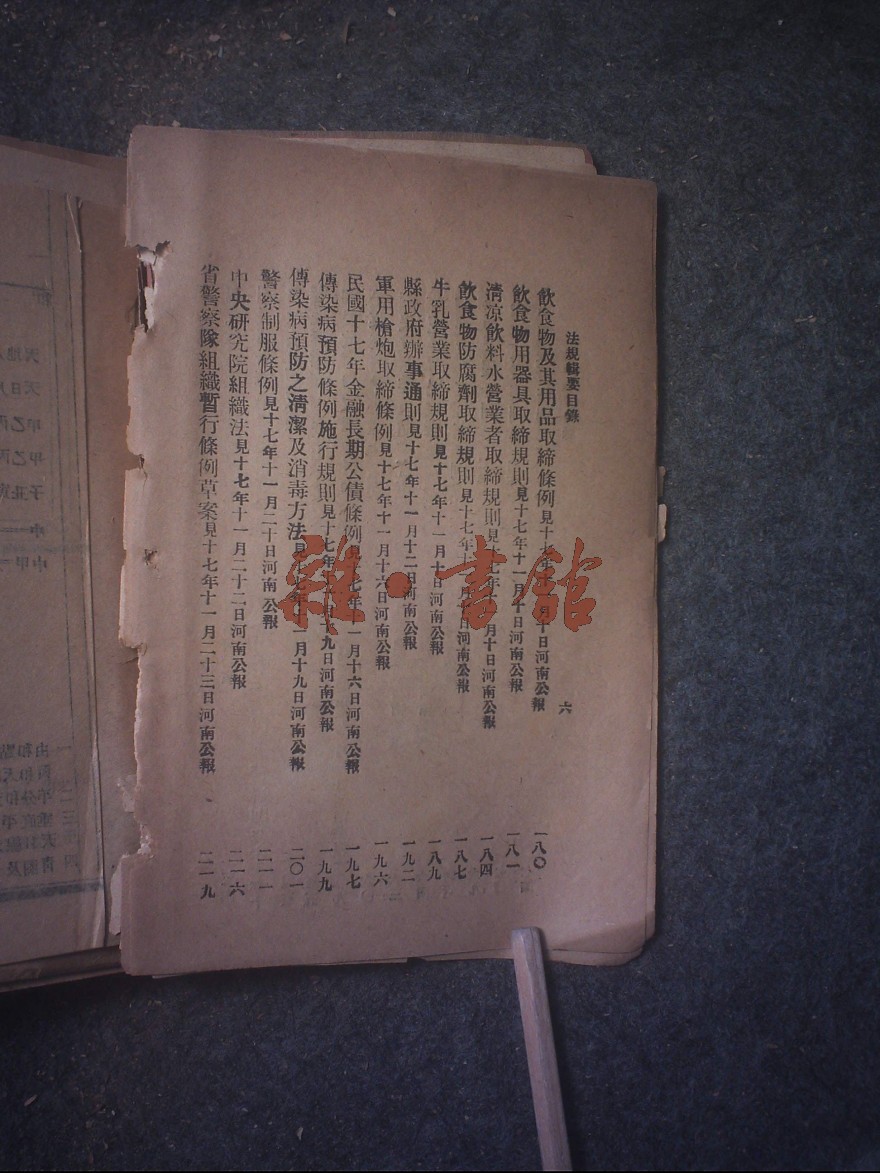 法規輯要目錄 六
飲食物及其用品取締條例見十七年十一月十日河南公報 一八〇
飲食物用器具取締規則見十七年十一月十日河南公報 一八一
清涼飲料水營業者取締規則見十七年十一月十日河南公報 一八四
飲食物防腐劑取締規則見十七年十一月十日河南公報 一八七
牛乳營業取締規則見十七年十一月十日河南公報 一八九
縣政府辦事通則見十七年十一月十二日河南公報 一九二
軍用槍炮取締條例見十七年十一月十六日河南公報 一九六
民國十七年金融長期公債條例見十七年十一月十六日河南公報 一九七
傳染病預防條例施行規則見十七年十一月十九日河南公報 一九九
傳染病預防之清潔及消毒方法見十七年十一月十九日河南公報 二〇一
警察制服條例見十七年十一月二十日河南公報 二一一
中央研究院組織法見十七年十一月二十二日河南公報 二一六
省警察隊組織暫行條例草案見十七年十一月二十三日河南公報 二一九
雜·書館